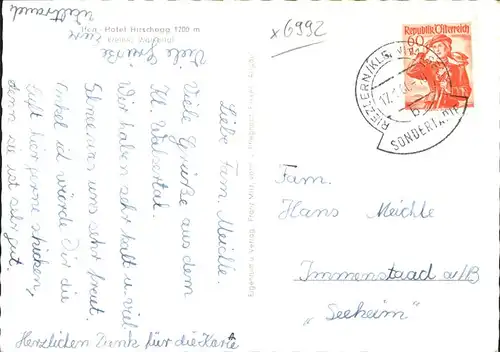 Ifen - Hotel Hirschegg 1200 m
Liebe Fam. Meichle.
Viele Grüße aus dem
Kl. Walsertal.
Wir haben sehr kalt u. viel
Schnee was uns sehr freut.
Onkel ich würde Dir die
Luft hier gerne schicken,
denn sie ist sehr gut.
Herzlichen Dank für die Karte
Viele Grüße
Eure
Waltraud
x6992
Republik Österreich
60
RIEZLERN/KLS.
17.1.60
b
SONDERTARIF
Fam.
Hans Meichle
Immenstaad a/B
„Seeheim"